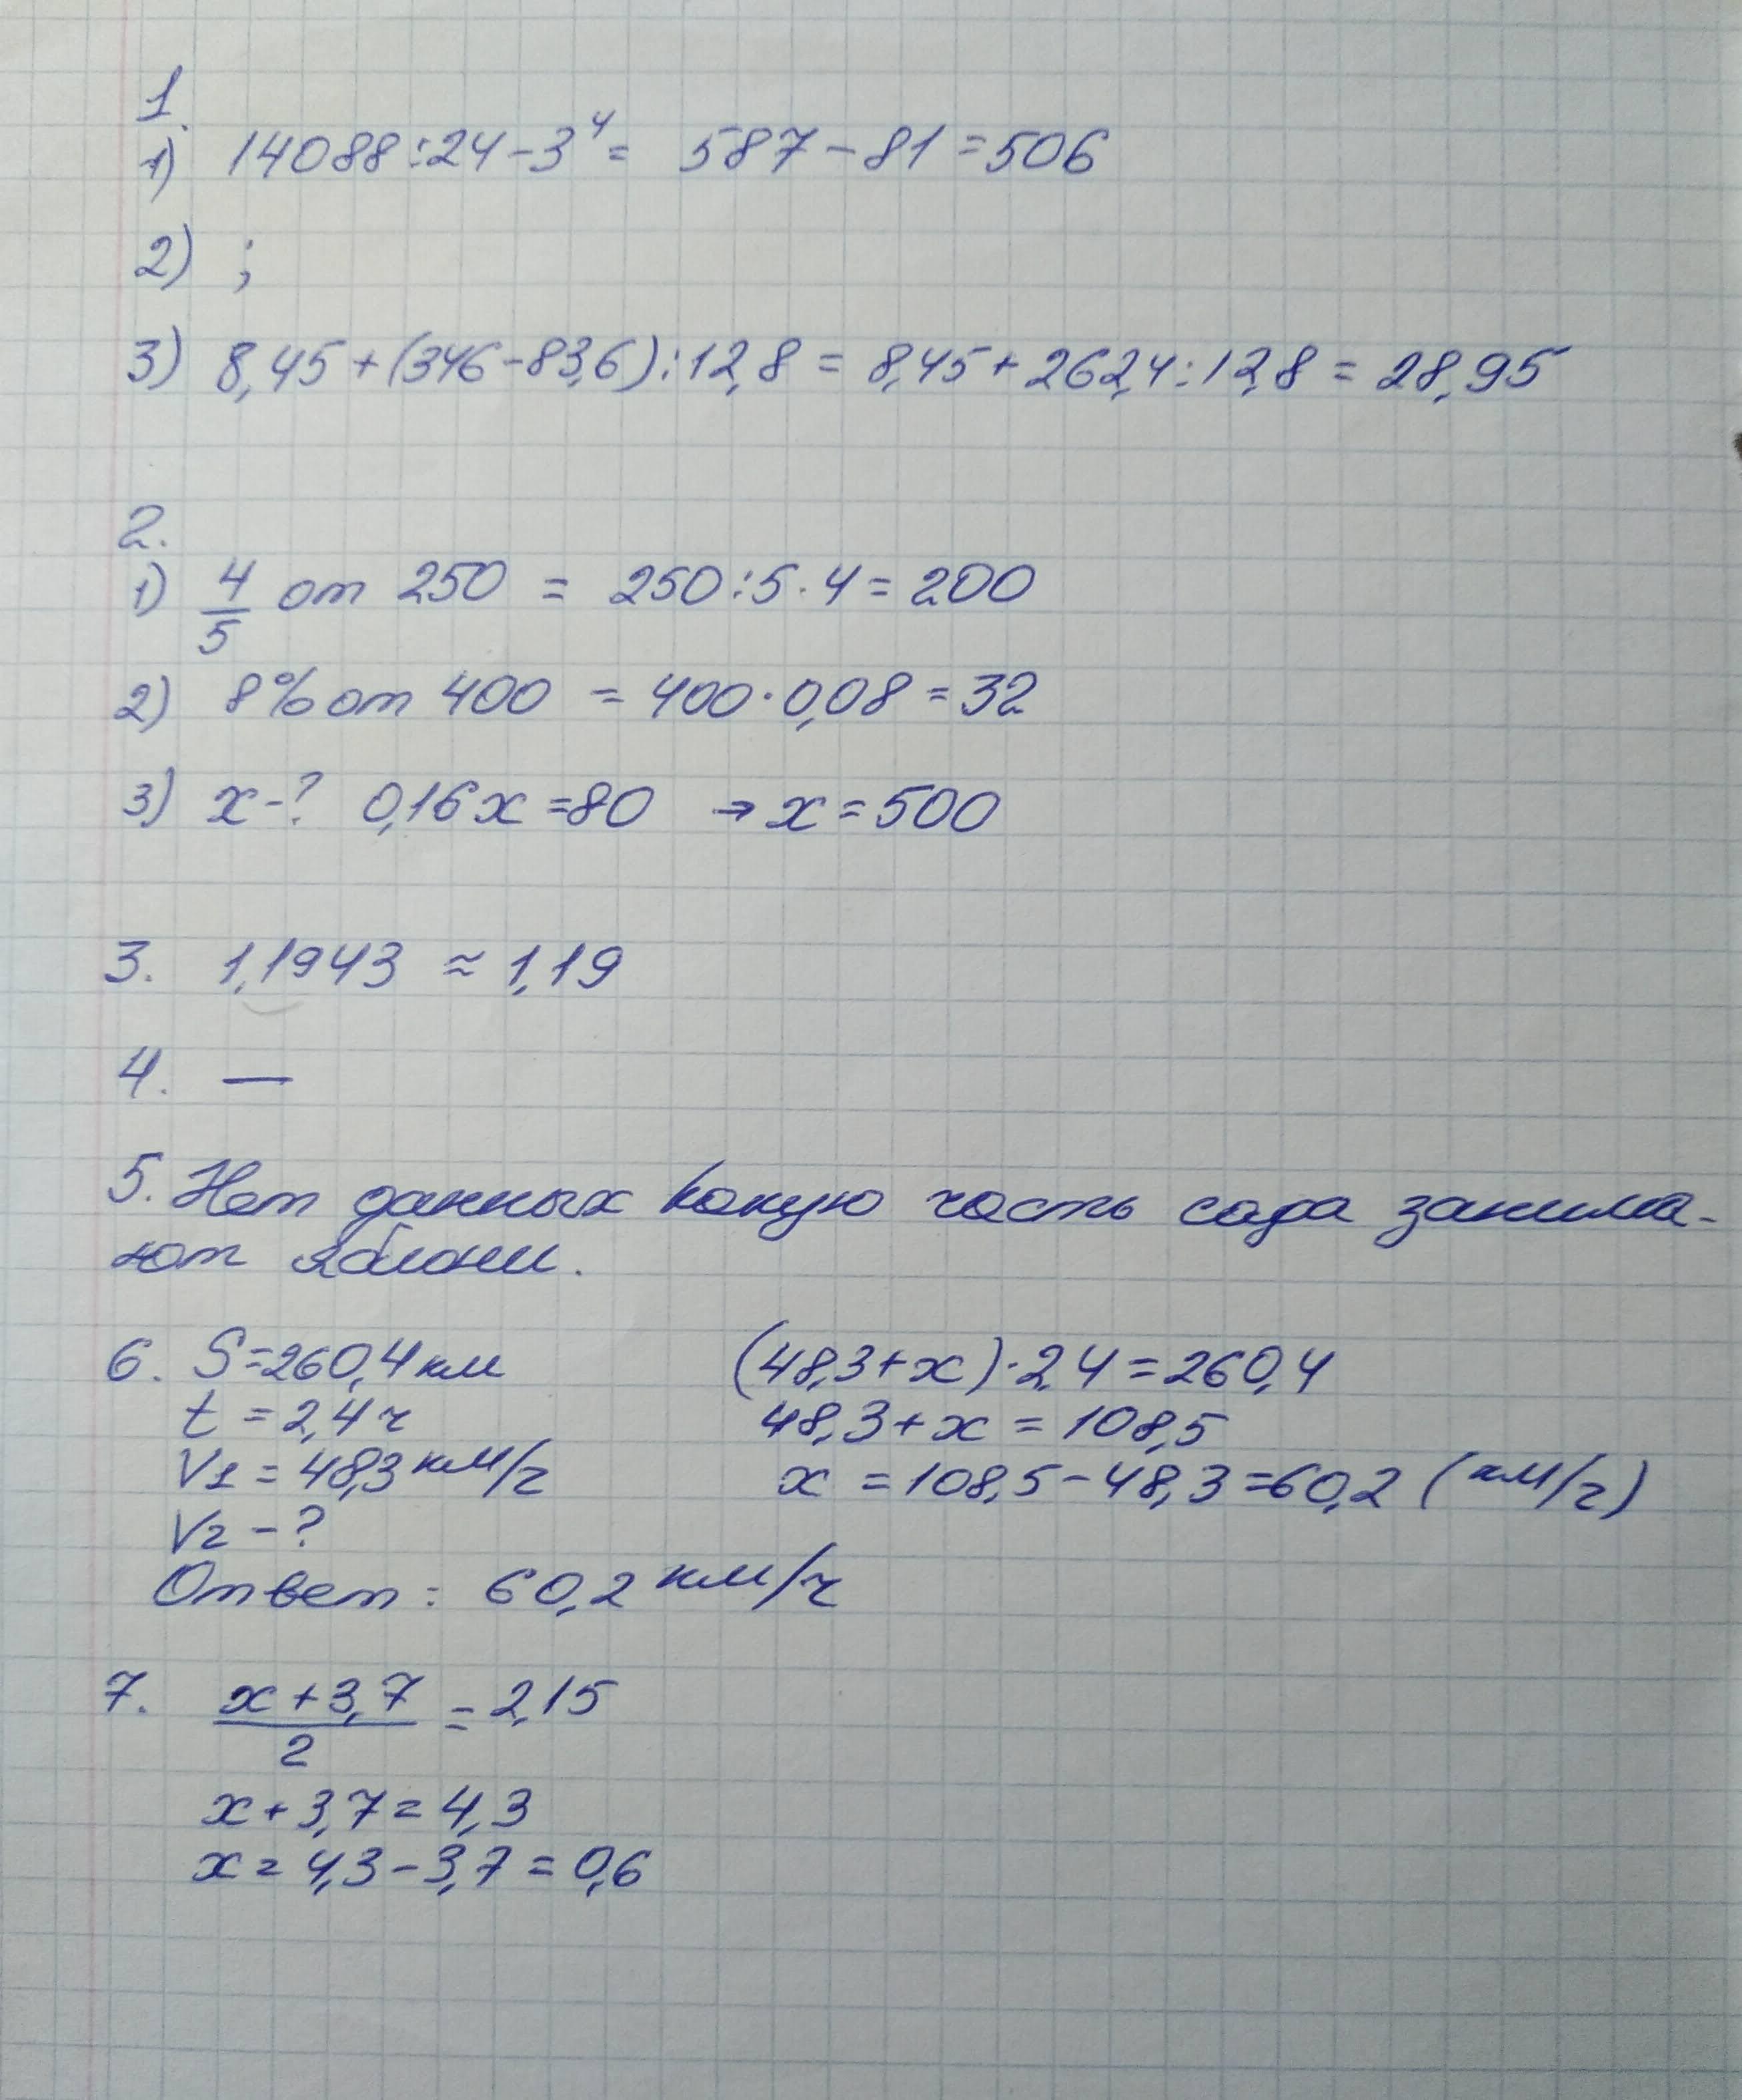 1.
1) 14088:24-3⁴= 587-81=506
2) ;
3) 8,45+(346-83,6):12,8 = 8,45+262,4:12,8 = 28,95
2.
1) 4/5 от 250 = 250:5·4=200
2) 8% от 400 = 400·0,08=32
3) x-? 0,16x=80 → x=500
3. 1,1943 ≈ 1,19
4. —
5. Нет данных какую часть сада занима-
ют яблони.
6. S=260,4 км (48,3+x)·2,4=260,4
t = 2,4 ч 48,3+x = 108,5
V1 = 48,3 км/ч x = 108,5-48,3=60,2 (км/ч)
V2 - ?
Ответ: 60,2 км/ч
7. (x+3,7)/2 = 2,15
x+3,7=4,3
x=4,3-3,7=0,6